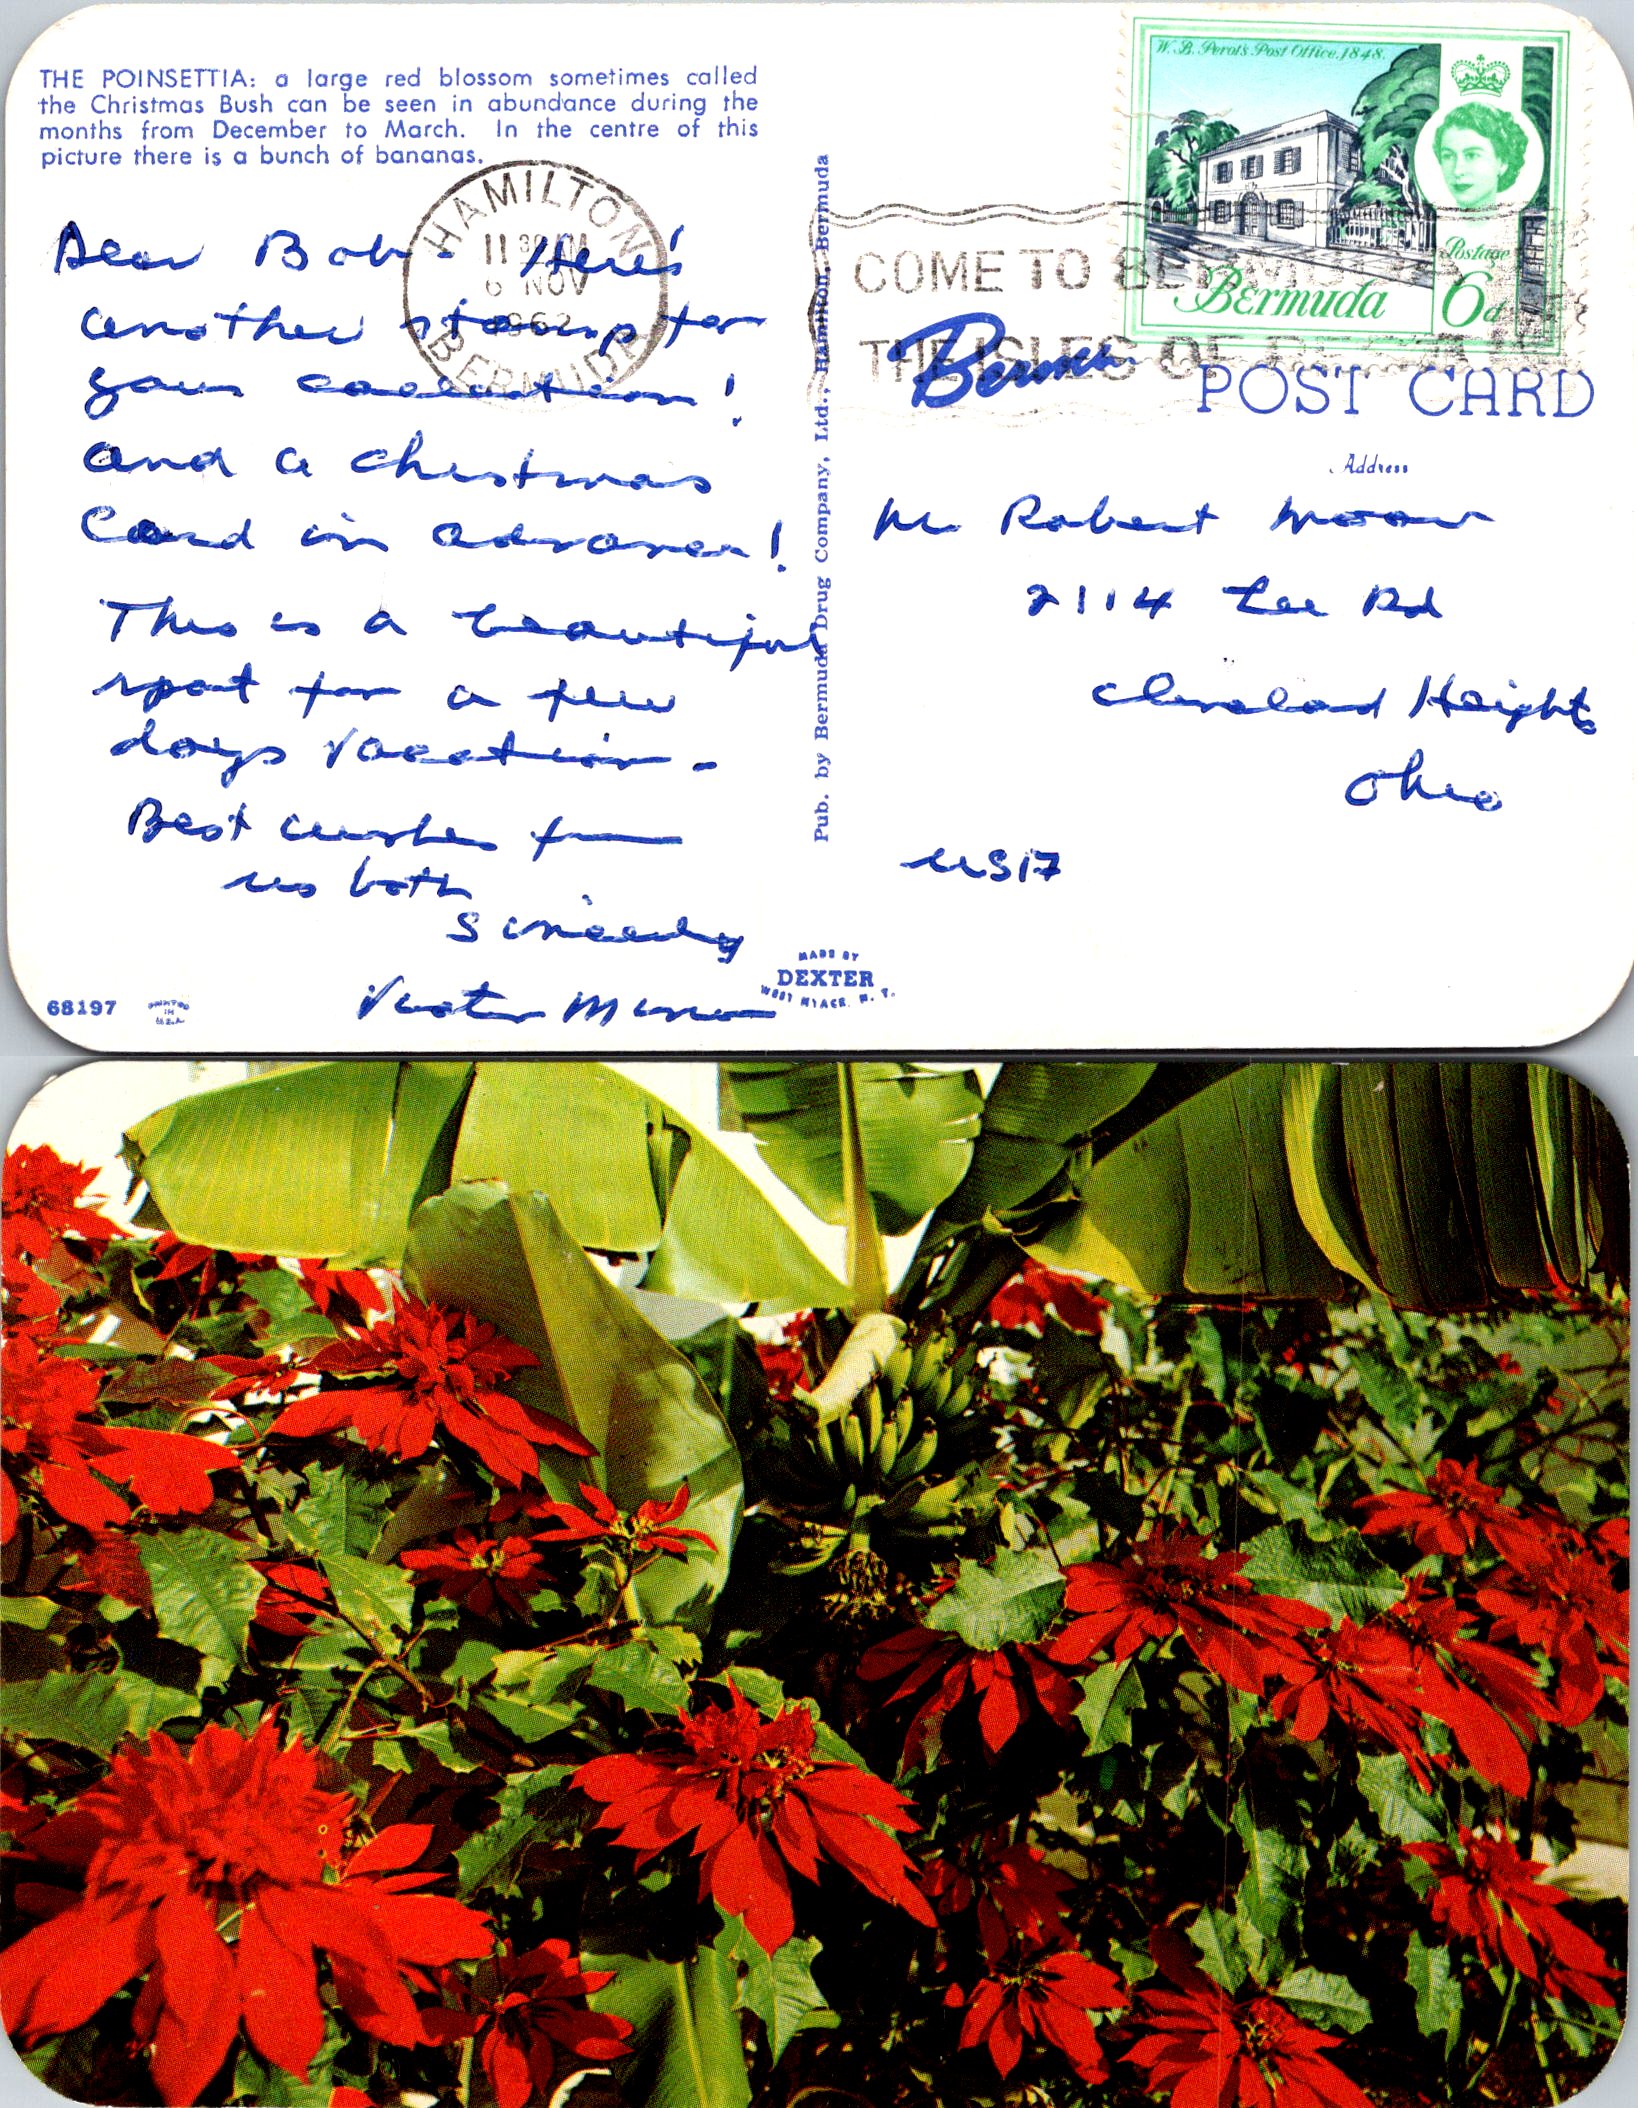 THE POINSETTIA: a large red blossom sometimes called
the Christmas Bush can be seen in abundance during the
months from December to March. In the centre of this
picture there is a bunch of bananas.
HAMILTON
11 30 AM
6 NOV
1962
BERMUDA
COME TO BERMUDA
THE ISLES OF
W. B. Perot's Post Office, 1848.
Postage
Bermuda 6d
Dear Bob - Here's
another stamp for
your collection!
and a christmas
Card in advance!
This is a beautiful
spot for a few
days vacation -
Best wishes from
us both
Sincerely
Pub. by Bermuda Drug Company, Ltd., Hamilton, Bermuda
POST CARD
Address
Mr Robert Moore
2114 Lee Rd
Cleveland Heights
Ohio
US17
68197
PRINTED
IN
U.S.A.
MADE BY
DEXTER
WEST NYACK, N. Y.